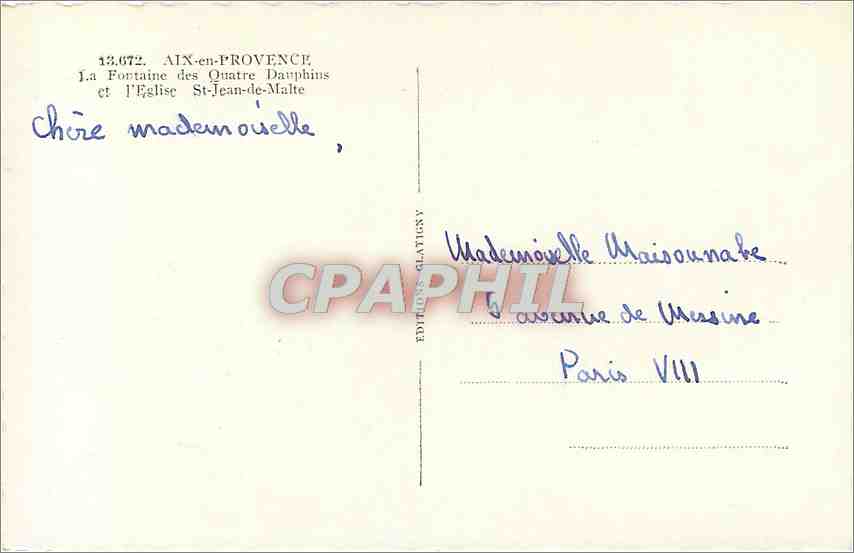 13.672. AIX-en-PROVENCE
La Fontaine des Quatre Dauphins
et l'Eglise St-Jean-de-Malte
Chère mademoiselle,
EDITIONS GLATIGNY
CPAPHIL
Mademoiselle Maisonnabe
9 avenue de Messine
Paris VIII